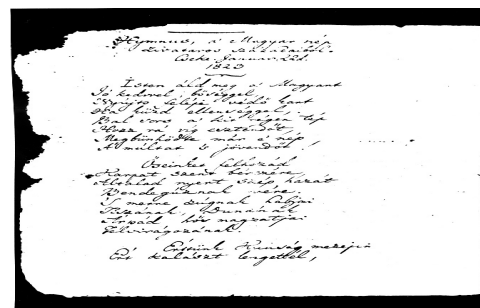 Hymnus, a' Magyar nép
zivataros századaiból.
Cseke. Januar. 22d.
1823
Isten áldd meg a Magyart
Jó kedvvel, bőséggel,
Nyújts feléje védő kart
Ha küzd ellenséggel,
Bal sors a' kit régen tép
Hozz rá víg esztendőt,
Megbünhödte már e' nép
A' múltat 's jövendőt!
Őseinket felhozád
Kárpát szent bérczére,
Általad nyert szép hazát
Bendegúznak vére.
'S merre zúgnak habjai
Tiszának, Dunának
Árpád hős magzatjai
Felvirágozának.
Értünk Kunság mezején
Ért kalászt lengettél,